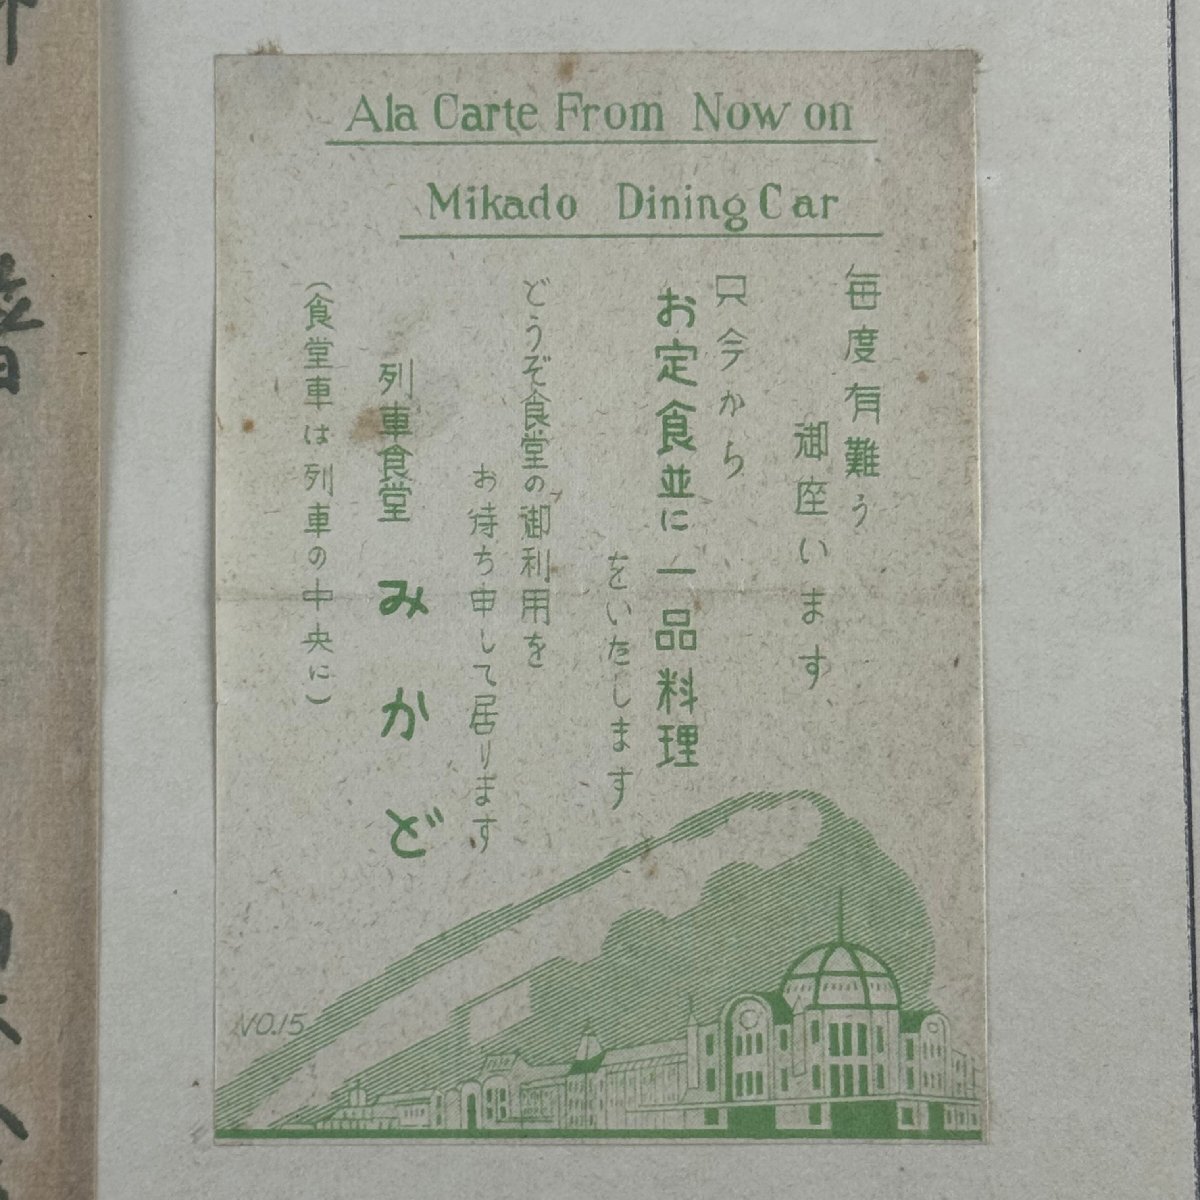 Ala Carte From Now on
Mikado Dining Car
毎度有難う
御座います
只今から
お定食並に一品料理
をいたします
どうぞ食堂の御利用を
お待ち申して居ります
列車食堂 みかど
(食堂車は列車の中央に)
NO.15